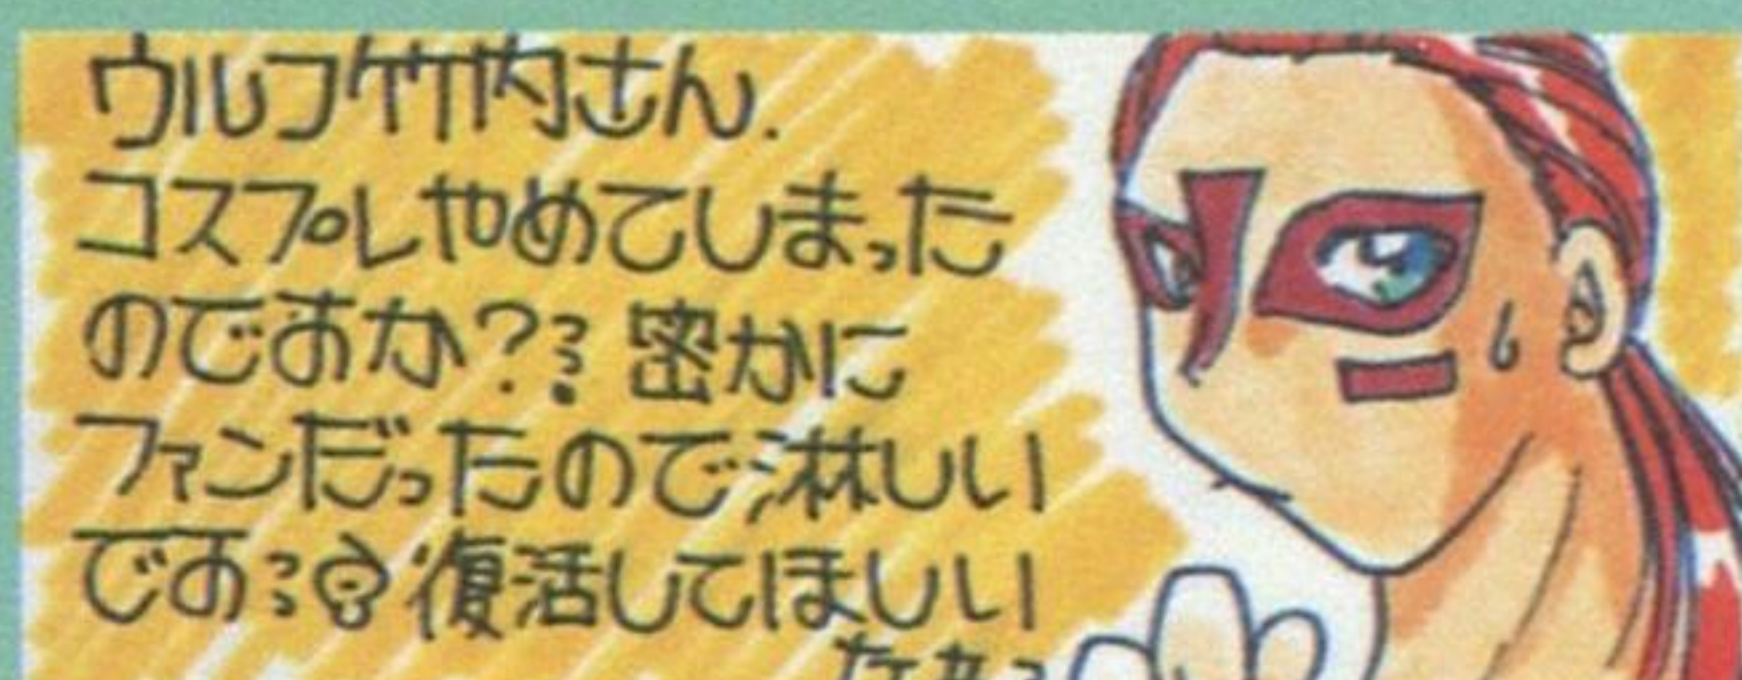 ウルフ竹内さん.
コスプレやめてしまった
のですか?? 密かに
ファンだったので淋しい
です 復活してほしい